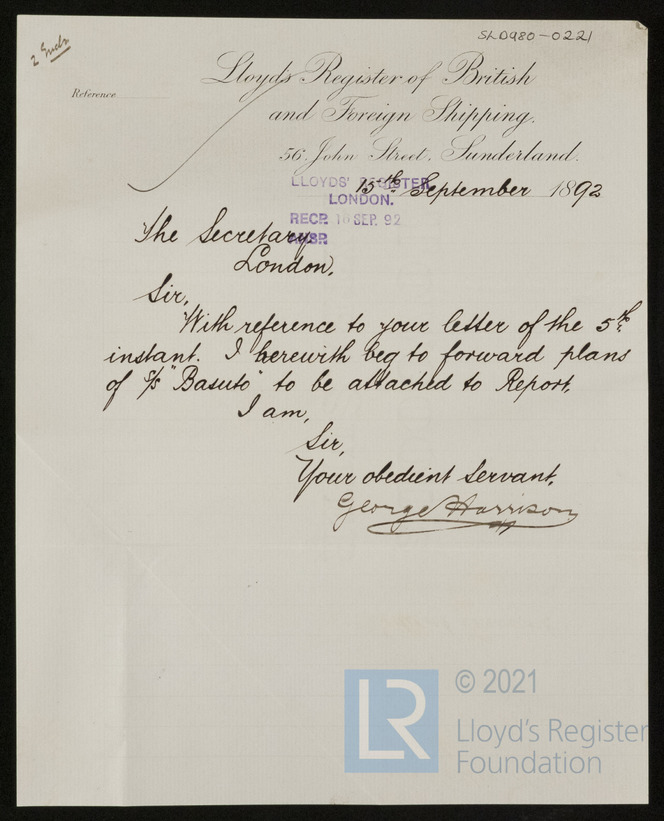 SLD980-0221
2 Encls
Reference
Lloyds Register of British
and Foreign Shipping.
56, John Street, Sunderland.
15th September 1892
LLOYDS' REGISTER
LONDON.
RECD. 16 SEP. 92
ANSR
The Secretary,
London.
Sir,
With reference to your letter of the 5th
instant. I herewith beg to forward plans
of S/S "Basuto" to be attached to Report.
I am,
Sir,
Your obedient Servant,
George Harrison
LR
© 2021
Lloyd's Register
Foundation